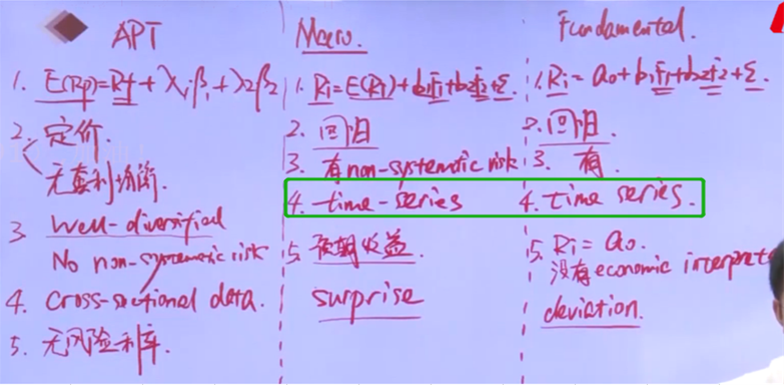 APT
1. E(Rp)=Rf+λ1β1+λ2β2
2. 定价.
无套利均衡.
3 Well-diversified
No non-systematic risk
4. Cross-sectional data.
5. 无风险利率.
Macro.
1. Ri=E(Ri)+b1F1+b2F2+Σ.
2. 回归
3. 有non-systematic risk
4. time-series
5. 预期收益.
surprise
Fundamental.
1. Ri=a0+b1F1+b2F2+Σ.
2. 回归.
3. 有.
4. time series.
5. Ri=a0.
没有economic interpret
deviation.